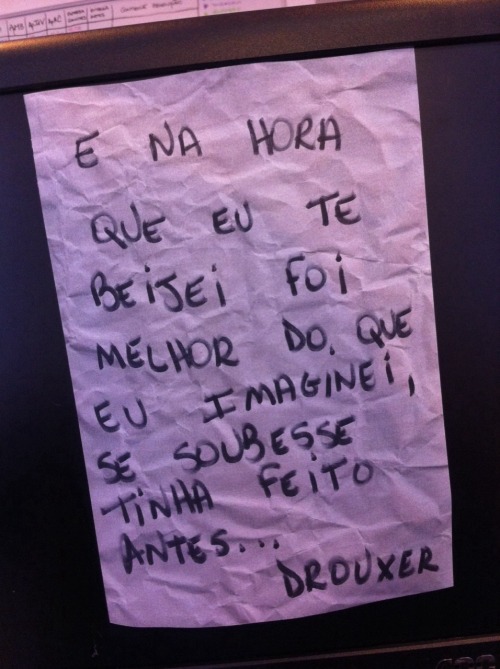 E NA HORA
QUE EU TE
BEIJEI FOI
MELHOR DO QUE
EU IMAGINEI,
SE SOUBESSE
TINHA FEITO
ANTES...
DROUXER